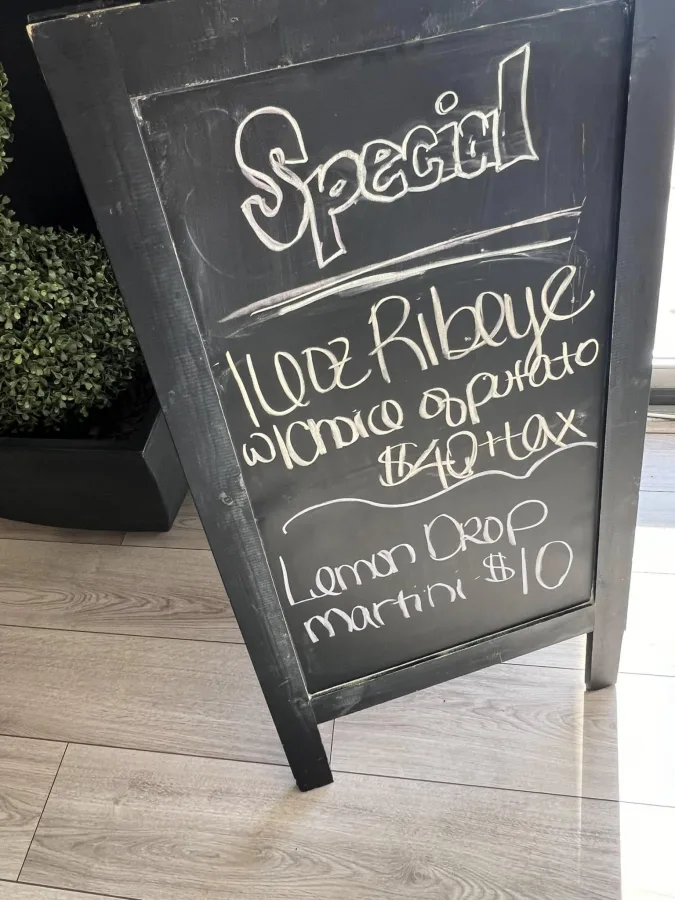 Special
16oz Ribeye
w/Choice of potato
$40+tax
Lemon Drop
martini $10